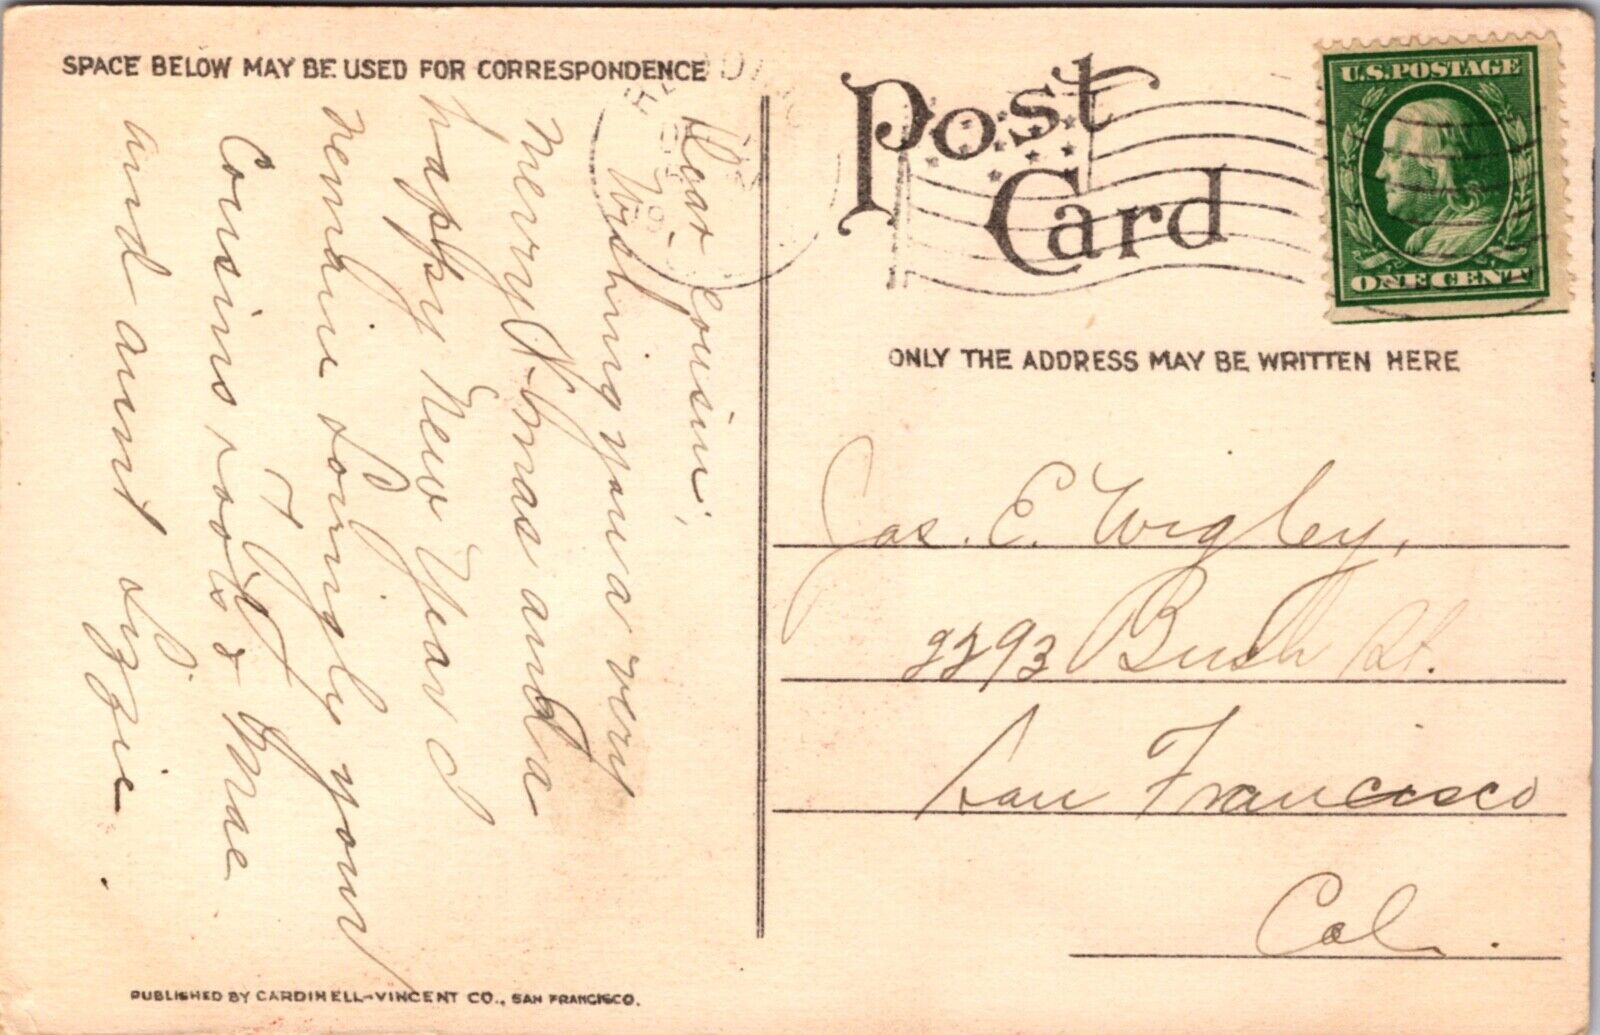 SPACE BELOW MAY BE USED FOR CORRESPONDENCE
Dear Cousin,
Wishing you a very
merry X-mas and a
happy New Year I
remain Lovingly your
Cousins, &  Mae
and aunt Lizzie.
PUBLISHED BY CARDINELL-VINCENT CO., SAN FRANCISCO.
Post
Card
U.S. POSTAGE
ONE CENT
ONLY THE ADDRESS MAY BE WRITTEN HERE
Jas. E. Wigley,
2293 Bush St.
San Francisco
Cal.